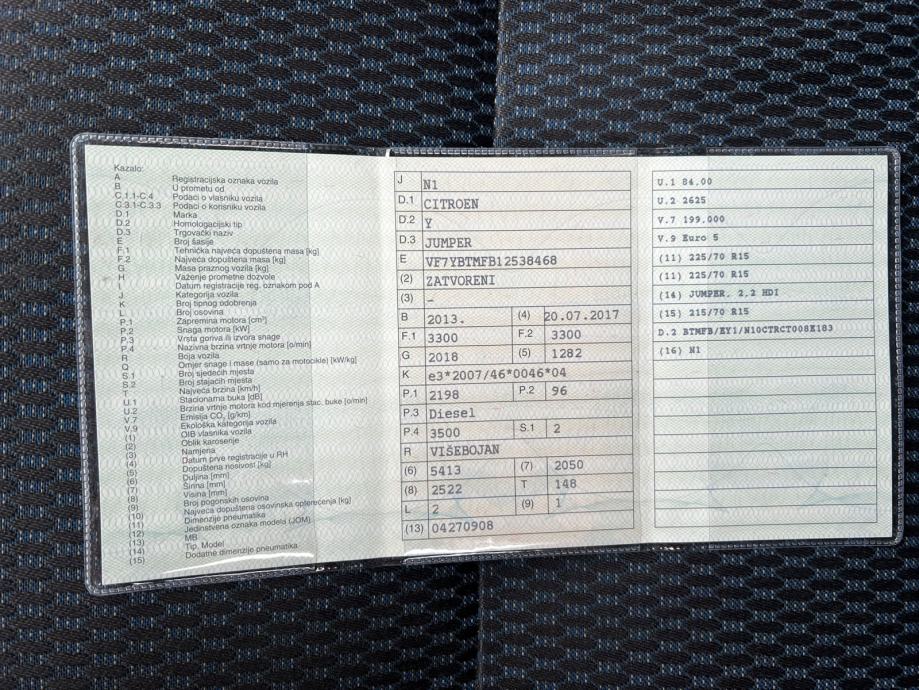 Kazalo:
A Registracijska oznaka vozila
B U prometu od
C.1.1-C.4 Podaci o vlasniku vozila
C.3.1-C.3.3 Podaci o korisniku vozila
D.1 Marka
D.2 Homologacijski tip
D.3 Trgovački naziv
E Broj šasije
F.1 Tehnička najveća dopuštena masa [kg]
F.2 Najveća dopuštena masa [kg]
G Masa praznog vozila [kg]
H Važenje prometne dozvole
I Datum registracije reg. oznakom pod A
J Kategorija vozila
K Broj tipnog odobrenja
L Broj osovina
P.1 Zapremina motora [cm³]
P.2 Snaga motora [kW]
P.3 Vrsta goriva ili izvora snage
P.4 Nazivna brzina vrtnje motora [o/min]
R Boja vozila
Q Omjer snage i mase (samo za motocikle) [kW/kg]
S.1 Broj sjedećih mjesta
S.2 Broj stajaćih mjesta
T Najveća brzina [km/h]
U.1 Stacionarna buka [dB]
U.2 Brzina vrtnje motora kod mjerenja stac. buke [o/min]
V.7 Emisija CO₂ [g/km]
V.9 Ekološka kategorija vozila
(1) OIB vlasnika vozila
(2) Oblik karoserije
(3) Namjena
(4) Datum prve registracije u RH
(5) Dopuštena nosivost [kg]
(6) Duljina [mm]
(7) Širina [mm]
(8) Visina [mm]
(9) Broj pogonskih osovina
(10) Najveća dopuštena osovinska opterećenja [kg]
(11) Dimenzije pneumatika
(12) Jedinstvena oznaka modela (JOM)
(13) MB
(14) Tip, Model
(15) Dodatne dimenzije pneumatika
J N1
D.1 CITROEN
D.2 Y
D.3 JUMPER
E VF7YBTMFB12538468
(2) ZATVORENI
(3) –
B 2013. (4) 20.07.2017
F.1 3300 F.2 3300
G 2018 (5) 1282
K e3*2007/46*0046*04
P.1 2198 P.2 96
P.3 Diesel
P.4 3500 S.1 2
R VIŠEBOJAN
(6) 5413 (7) 2050
(8) 2522 T 148
L 2 (9) 1
(13) 04270908
U.1 84.00
U.2 2625
V.7 199.000
V.9 Euro 5
(11) 225/70 R15
(11) 225/70 R15
(14) JUMPER, 2,2 HDI
(15) 215/70 R15
D.2 BTMFB/EY1/N10CTRCT008E183
(16) N1